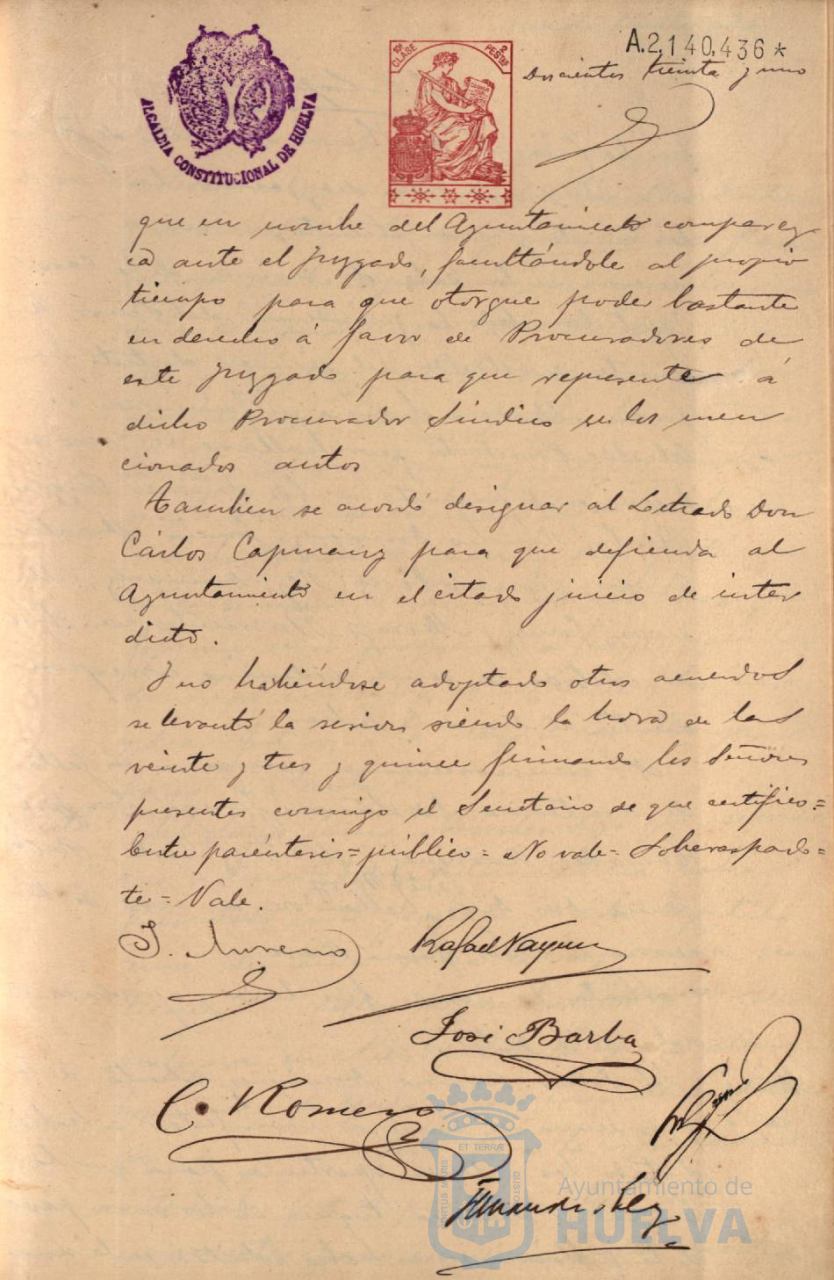 A.2,140,436*
10ª CLASE
2 PESTAS
Doscientos treinta y uno
ALCALDIA CONSTITUCIONAL DE HUELVA
que en nombre del Ayuntamiento comparez-
ca ante el Juzgado, facultándole al propio
tiempo para que otorgue poder bastante
en derecho á favor de Procuradores de
este Juzgado para que represente á
dicho Procurador Síndico en los men
cionados autos
Tambien se acordó designar al Letrado Don
Cárlos Capmany para que defienda al
Ayuntamiento en el citado juicio de inter
dicto.
Y no habiéndose adoptado otros acuerdos
se levantó la sesion siendo la hora de las
veinte y tres y quince firmando los Señores
presentes conmigo el Secretario de que certifico=
Entre paréntesis=público=No vale=Sobreraspado=
te=Vale.
J. Moreno
Rafael
José Barba
C. Romero
ET TERRÆ
Ayuntamiento de
HUELVA